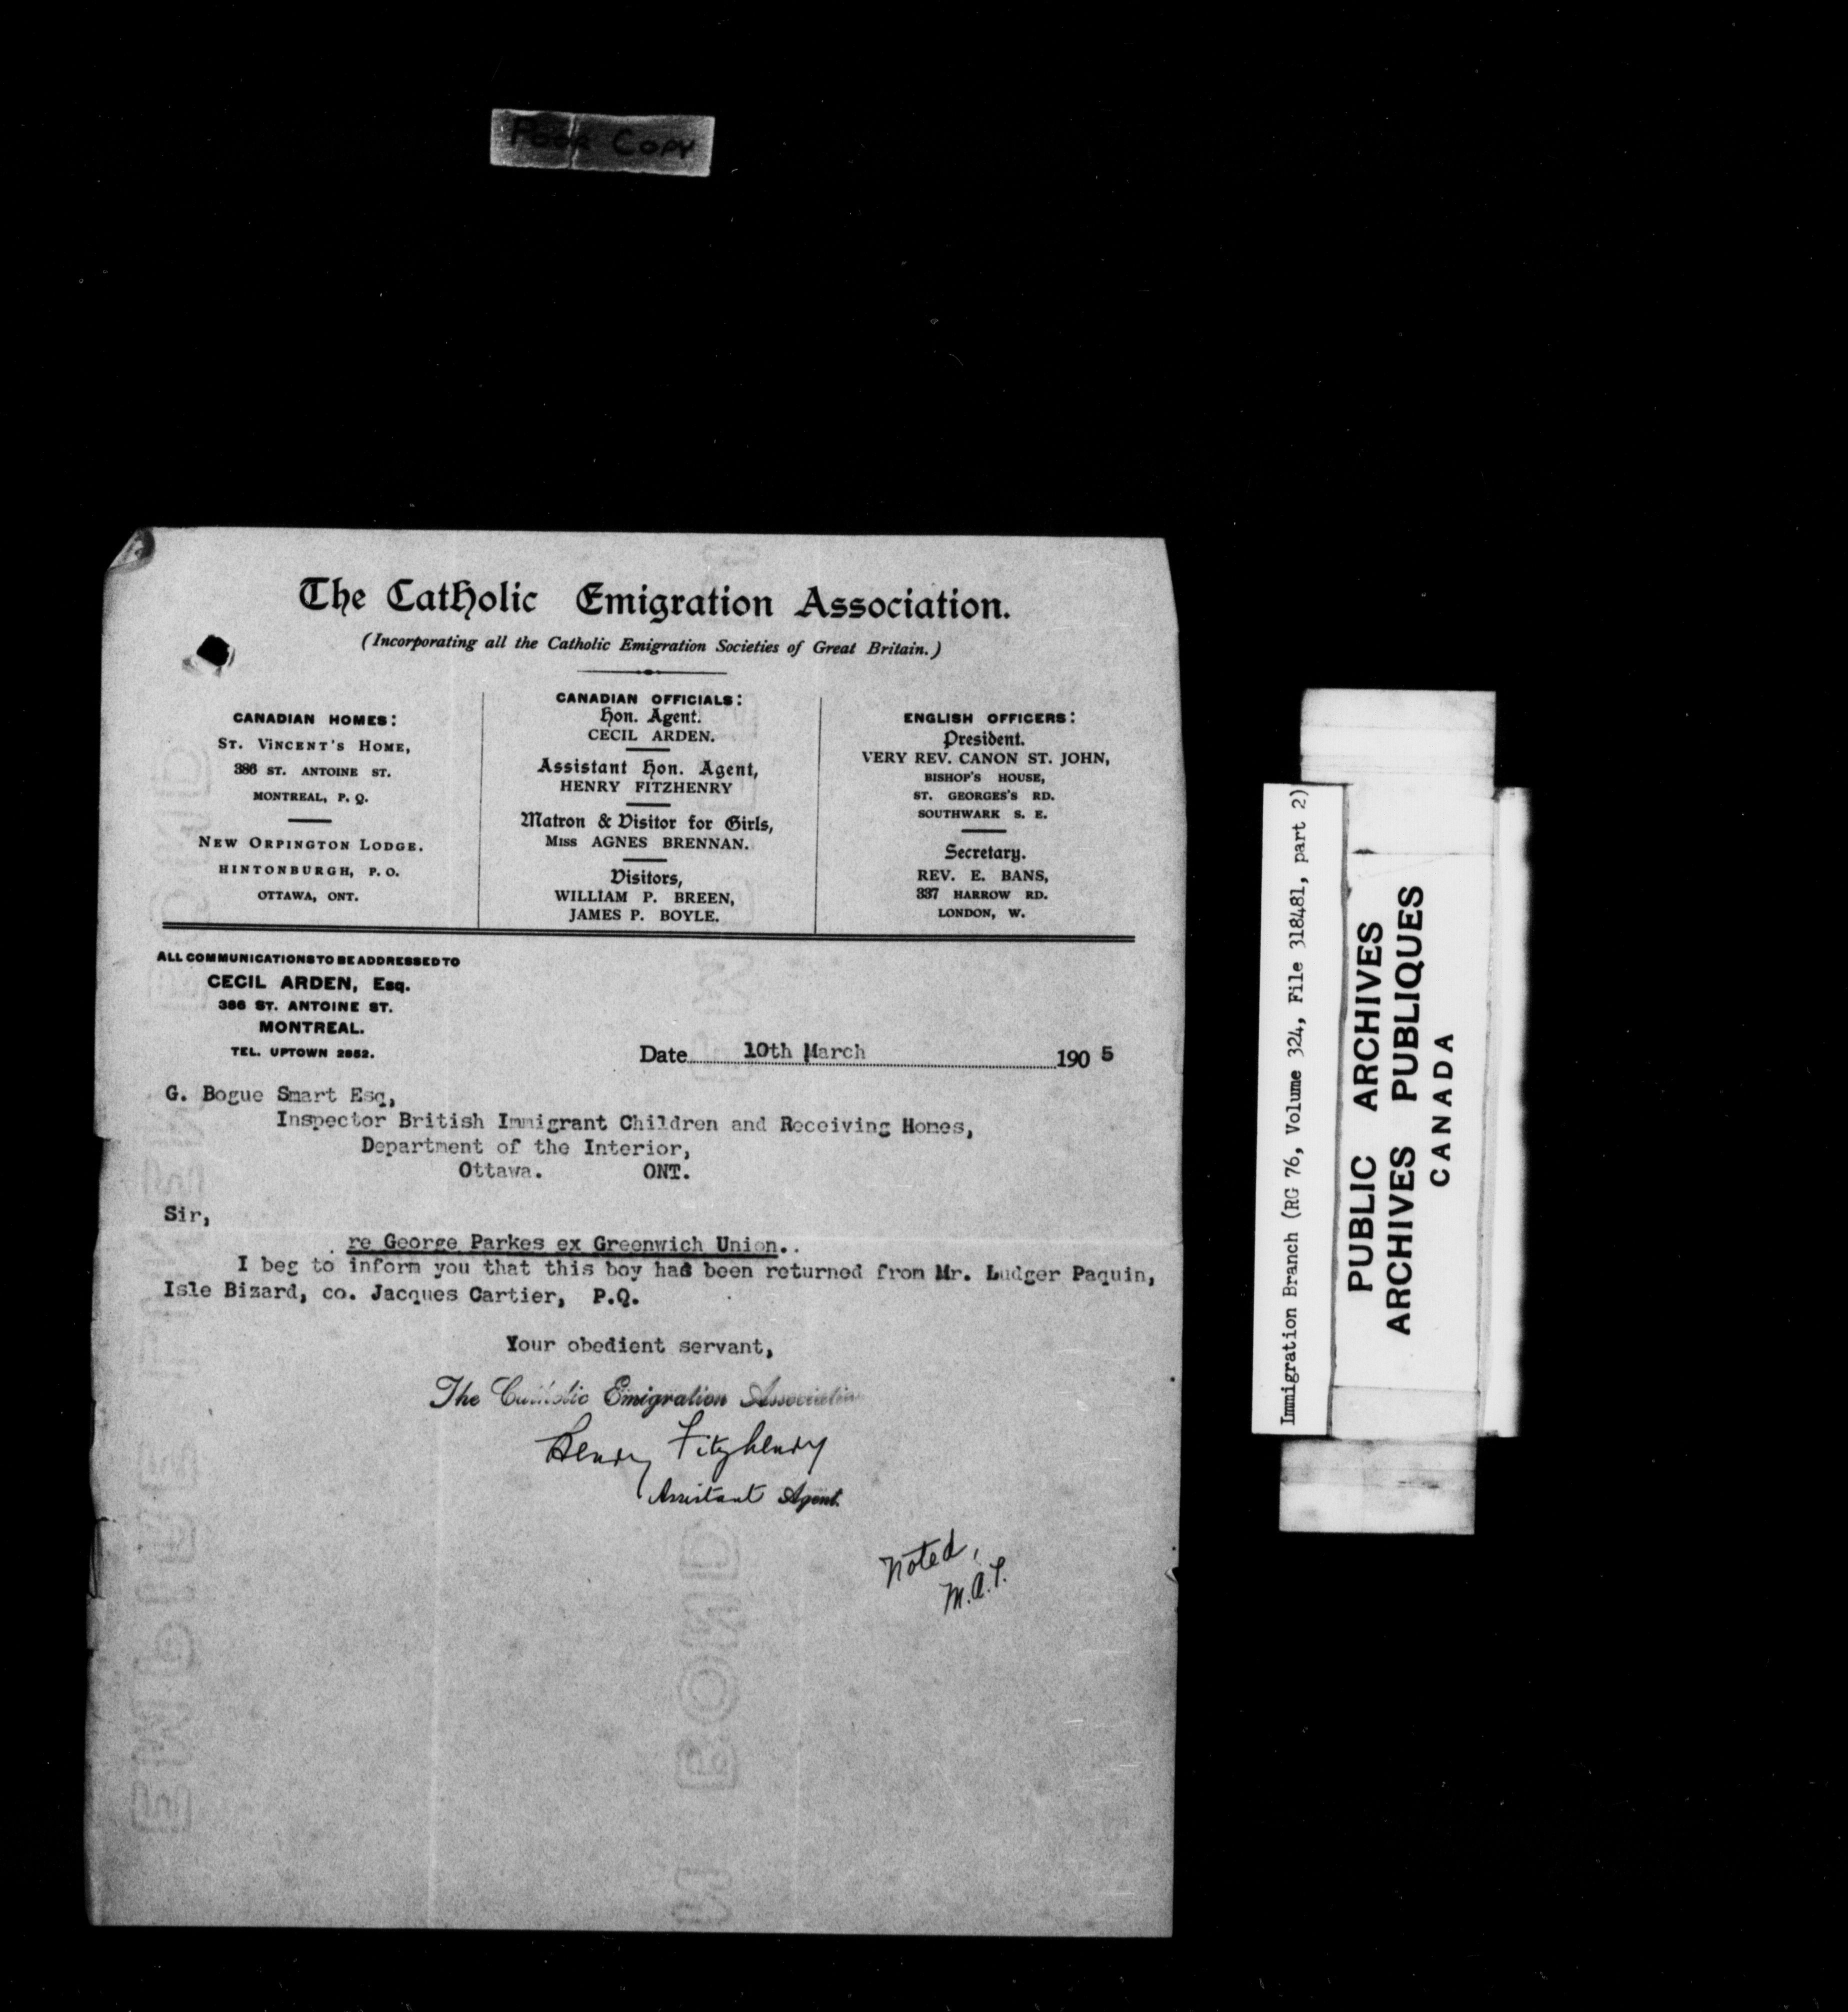 Poor Copy
The Catholic Emigration Association.
(Incorporating all the Catholic Emigration Societies of Great Britain.)
CANADIAN HOMES:
ST. VINCENT'S HOME,
386 ST. ANTOINE ST.
MONTREAL, P. Q.
NEW ORPINGTON LODGE.
HINTONBURGH, P. O.
OTTAWA, ONT.
CANADIAN OFFICIALS:
Hon. Agent.
CECIL ARDEN.
Assistant Hon. Agent,
HENRY FITZHENRY
Matron & Visitor for Girls,
MISS AGNES BRENNAN.
Visitors,
WILLIAM P. BREEN,
JAMES P. BOYLE.
ENGLISH OFFICERS:
President.
VERY REV. CANON ST. JOHN,
BISHOP'S HOUSE,
ST. GEORGES'S RD.
SOUTHWARK S. E.
Secretary.
REV. E. BANS,
337 HARROW RD.
LONDON, W.
ALL COMMUNICATIONS TO BE ADDRESSED TO
CECIL ARDEN, Esq.
386 ST. ANTOINE ST.
MONTREAL.
TEL. UPTOWN 2652.
Date 10th March 1905
G. Bogue Smart Esq,
Inspector British Immigrant Children and Receiving Homes,
Department of the Interior,
Ottawa. ONT.
Sir,
re George Parkes ex Greenwich Union..
I beg to inform you that this boy has been returned from Mr. Ludger Paquin,
Isle Bizard, co. Jacques Cartier, P.Q.
Your obedient servant,
The Catholic Emigration Association
Henry Fitzhenry
Assistant Agent.
Noted,
M.A.P.
EMPIRE
BOND
Immigration Branch (RG 76, Volume 324, File 318481, part 2)
PUBLIC ARCHIVES
ARCHIVES PUBLIQUES
CANADA